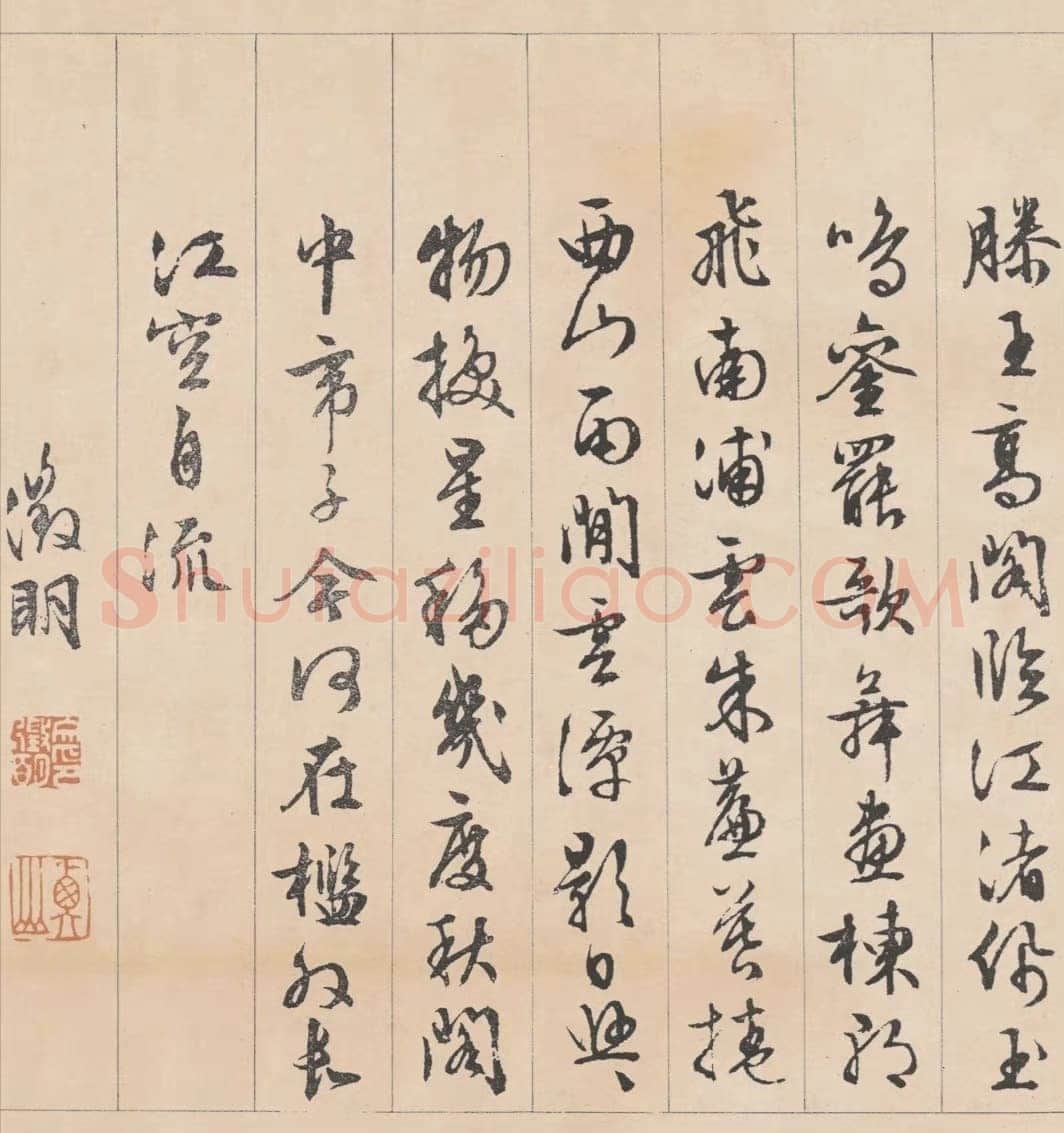 滕王高閣臨江渚佩玉
鳴鑾罷歌舞畫棟朝
飛南浦雲朱簾暮捲
西山雨閒雲潭影日悠々
物換星移幾度秋閣
中帝子今何在檻外長
江空自流
徵明
衡山
Shufaziliao.COM